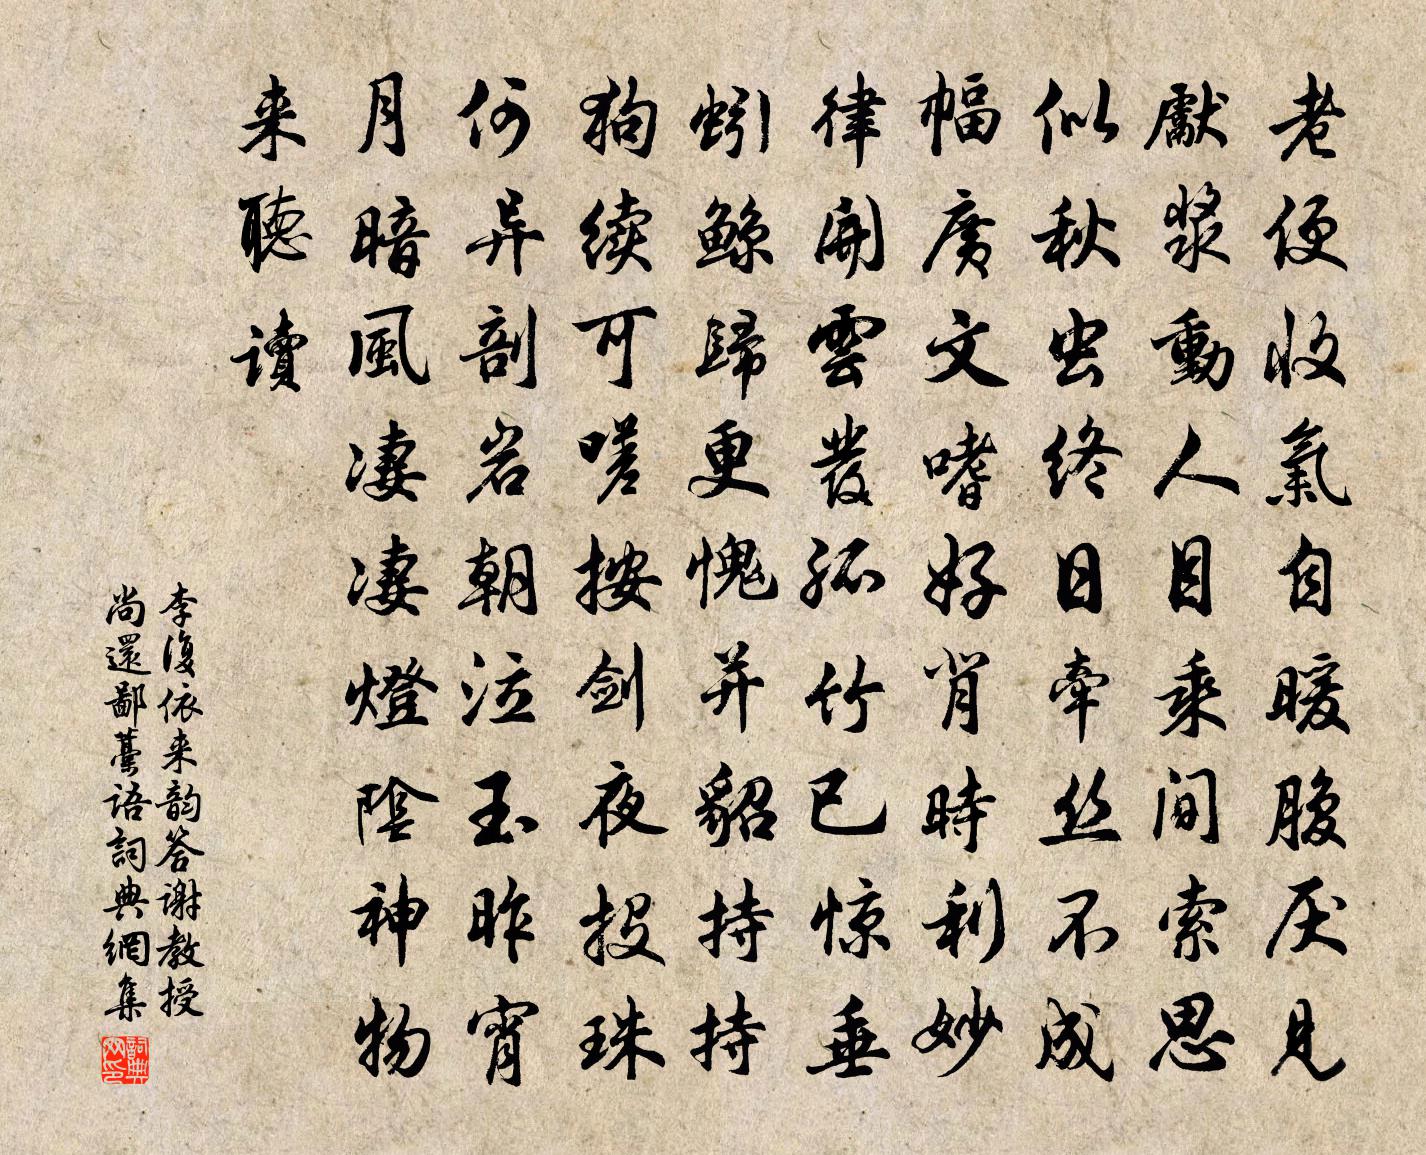 老便收氣自暖腹厌見
獻漿動人目乘间索思
似秋虫终日牽丝不成
幅廣文嗜好肖時利妙
律開雲發孤竹已惊垂
蚓鲸歸更愧并貂持持
狗续可嗟按剑夜投珠
何异剖岩朝泣玉昨宵
月暗風凄凄燈陰神物
来聽读
李復依来韵答谢教授
尚還鄙藁语詞典網集
詞典网印